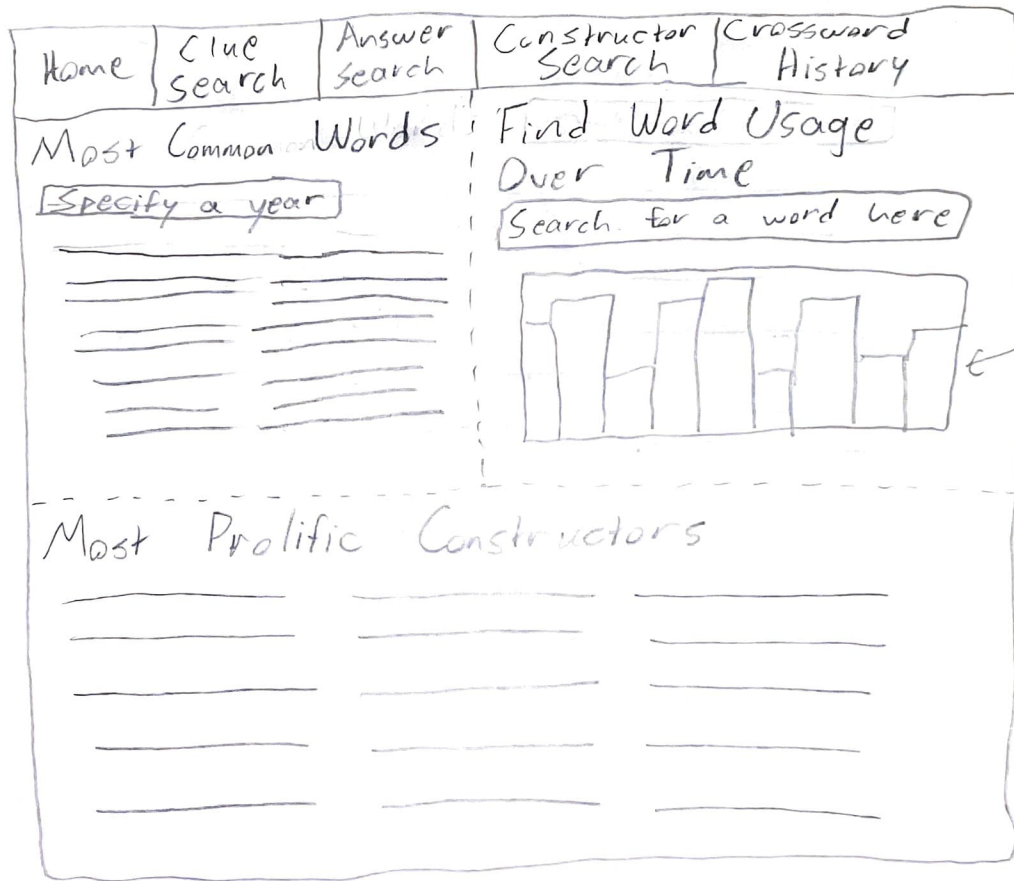 Home
Clue
Search
Answer
Search
Constructor
Search
Crossword
History
Most Common Words
Specify a year
Find Word Usage
Over Time
Search for a word here
Most Prolific Constructors